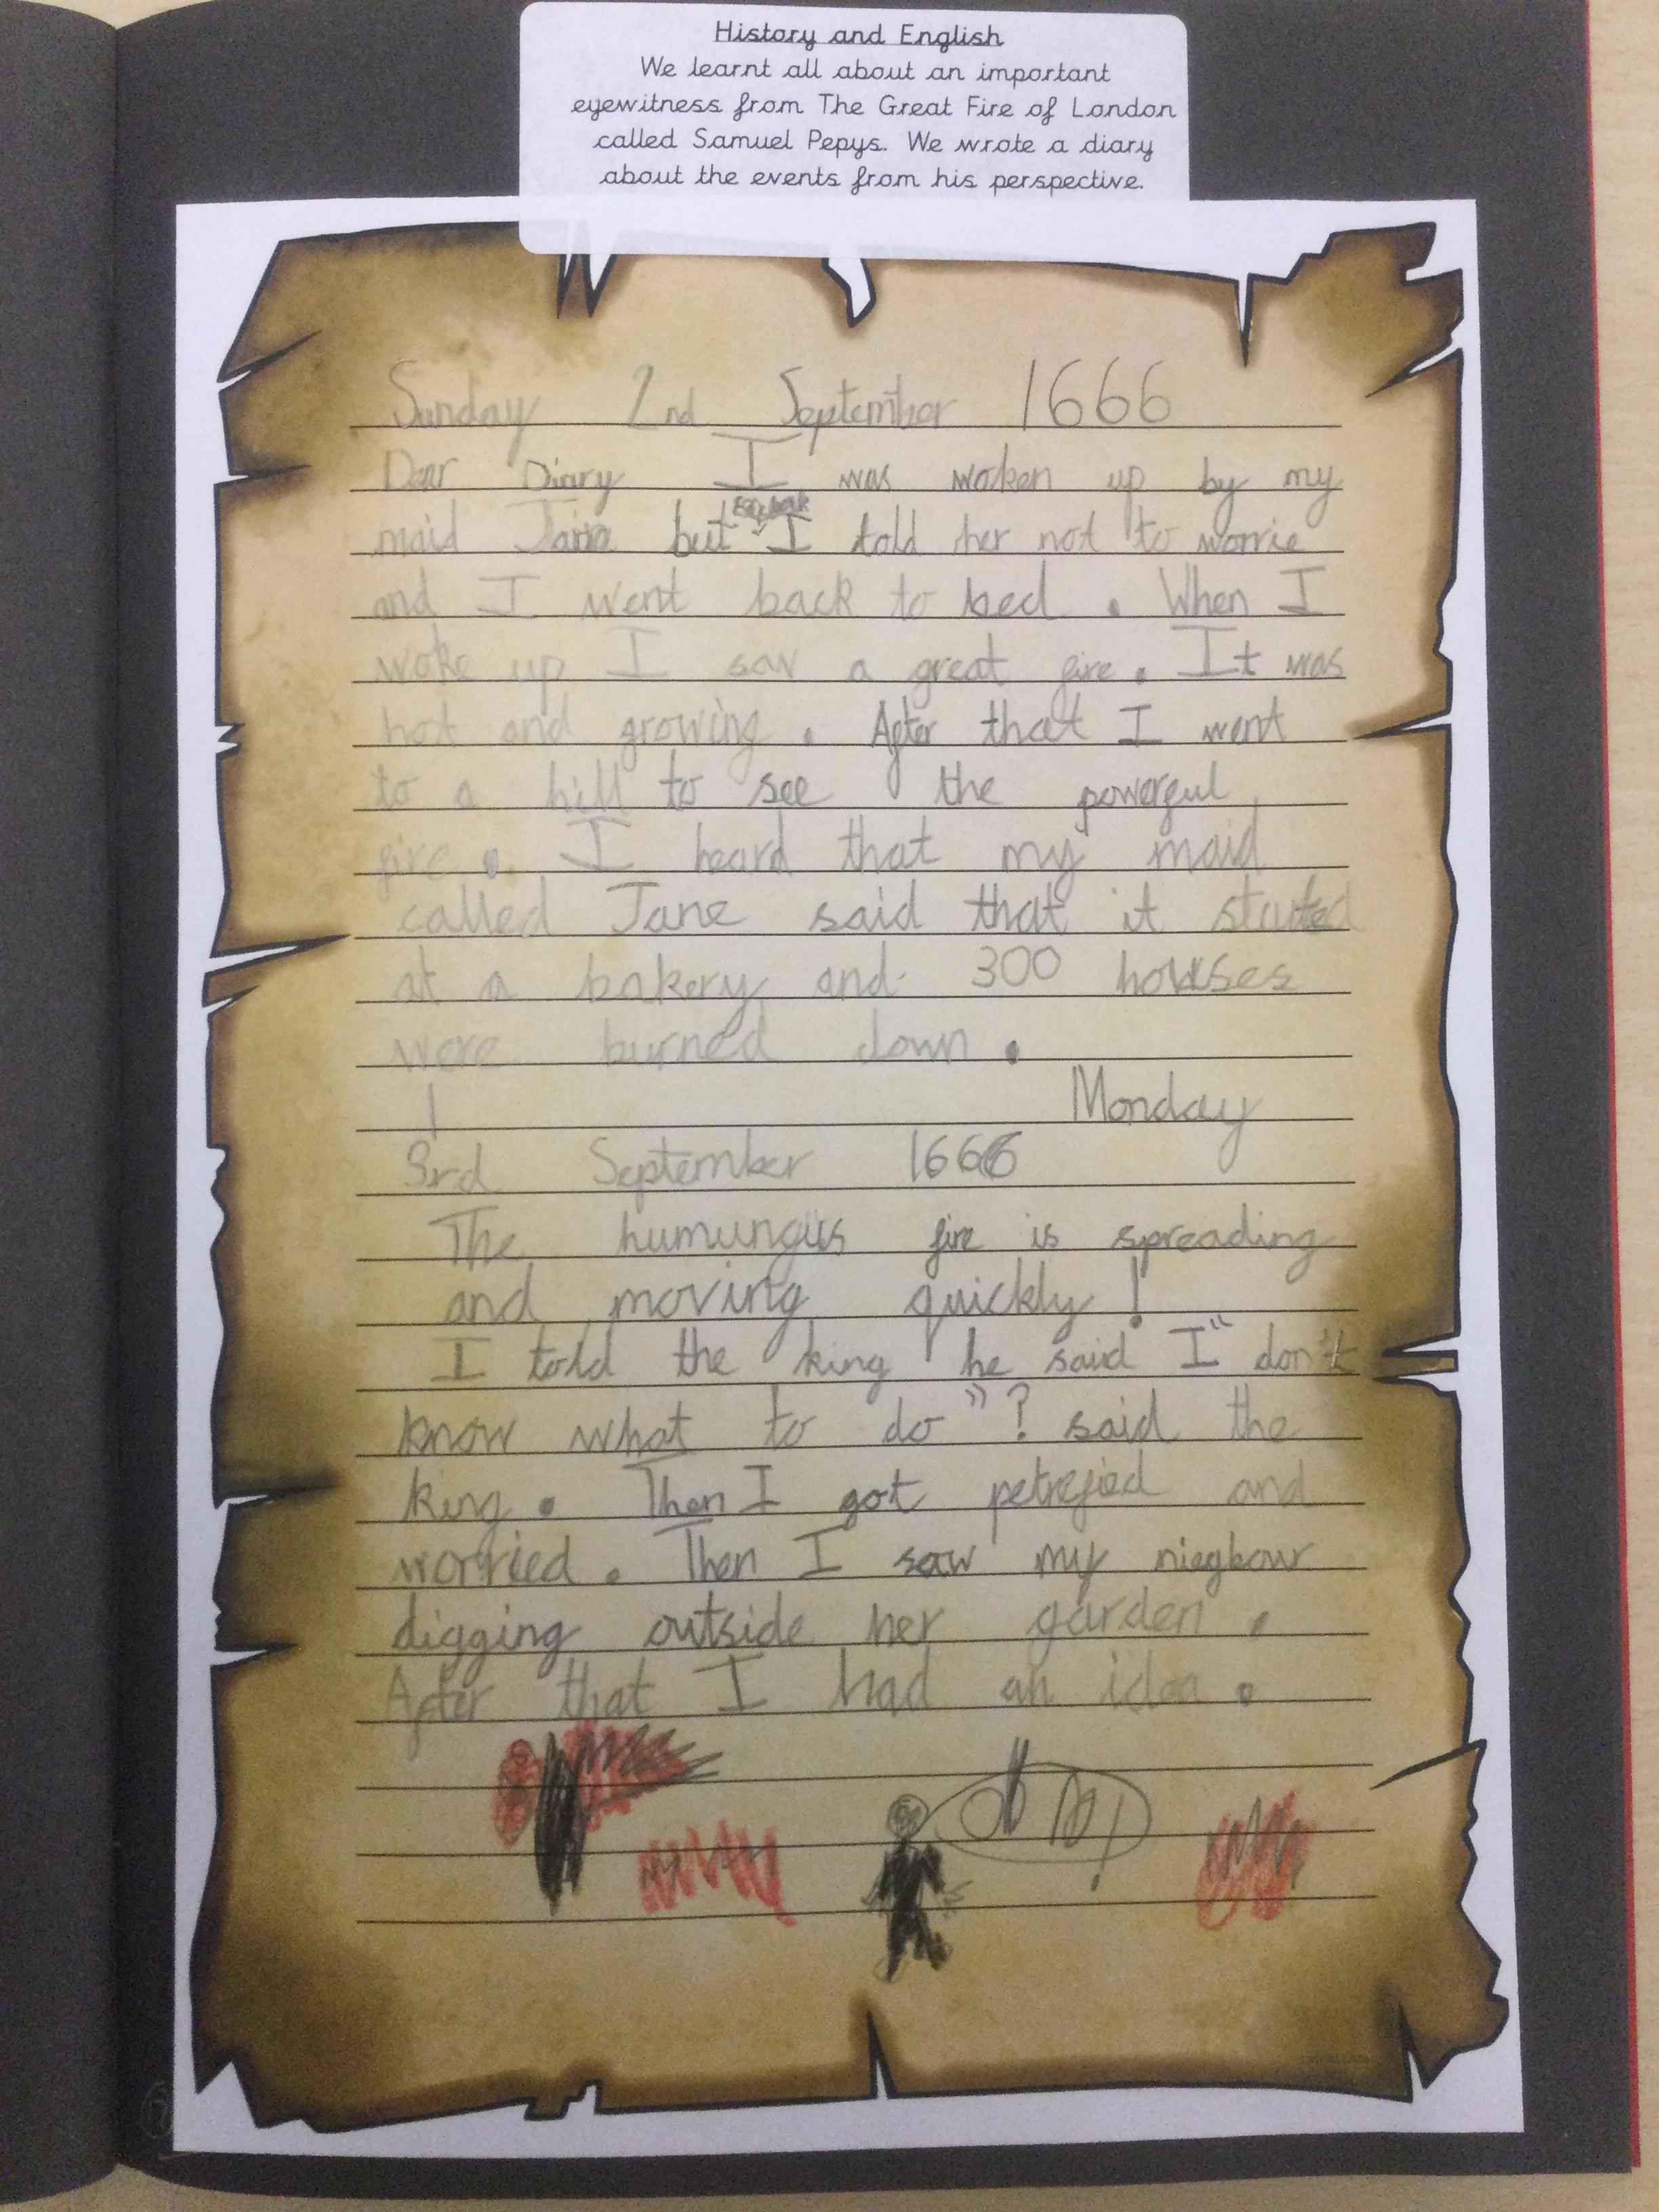 History and English
We learnt all about an important
eyewitness from The Great Fire of London
called Samuel Pepys. We wrote a diary
about the events from his perspective.
Sunday 2nd September 1666
Dear Diary I was woken up by my
maid but I told her not to worrie
and I went back to bed. When I
woke up I saw a great fire. It was
hot and growing. After that I went
to a hill to see the powerful
fire. I heard that my maid
called Jane said that it started
at a bakery and 300 houses
were burned down.
Monday
3rd September 1666
The humungus fire is spreading
and moving quickly!
I told the king he said I" don't
know what to do"? said the
king. Then I got petrefied and
worried. Then I saw my niegbour
digging outside her garden.
After that I had an idea.